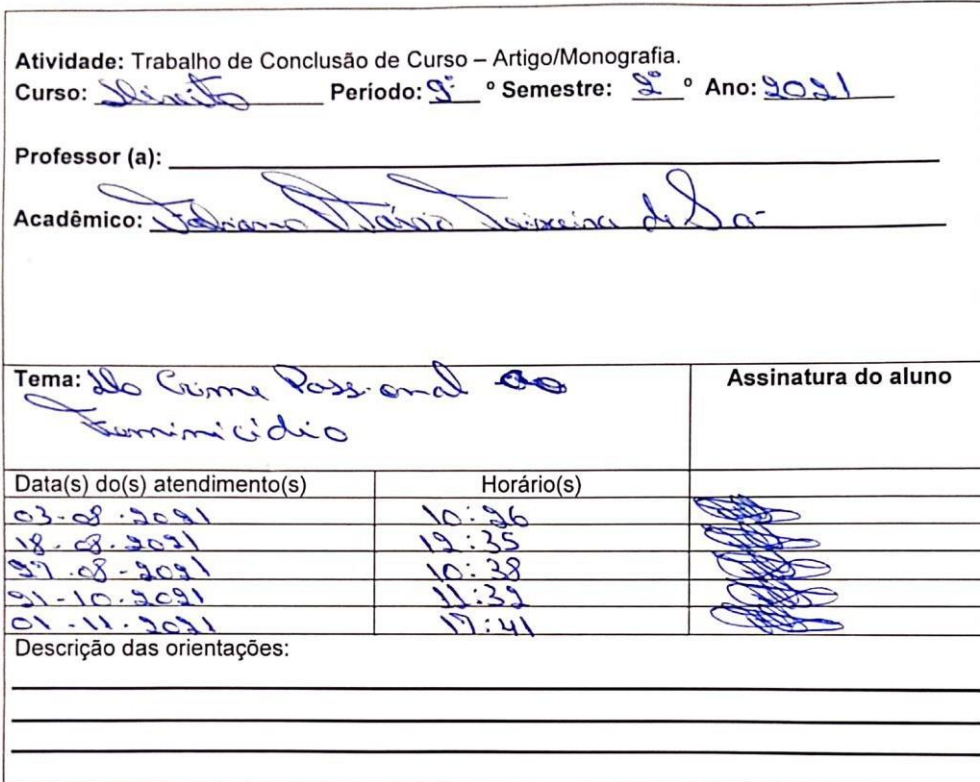 Atividade: Trabalho de Conclusão de Curso – Artigo/Monografia.
Curso: Direito Período: 9º º Semestre: 2º º Ano: 2021
Professor (a):
Acadêmico: Fabiano Mário Teixeira de Sá
Tema: Do Crime Passional ao
Feminicídio
Assinatura do aluno
Data(s) do(s) atendimento(s) Horário(s)
03-08-2021 10:26
18-08-2021 12:35
27-08-2021 10:38
21-10-2021 11:32
01-11-2021 17:41
Descrição das orientações: